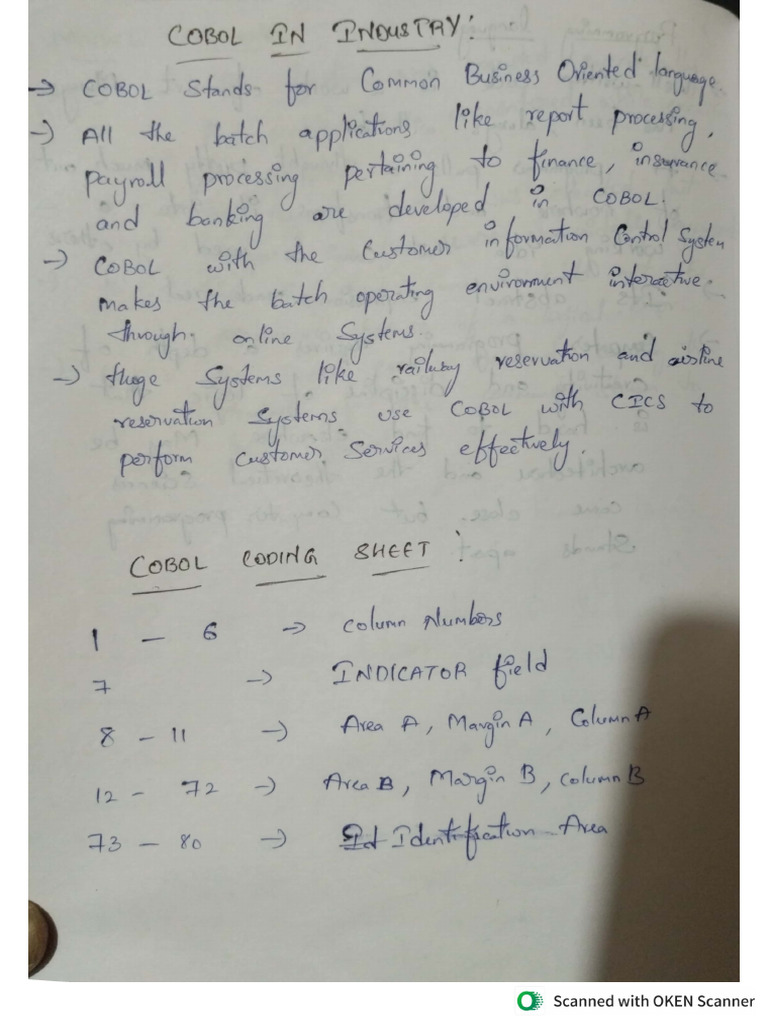 COBOL IN INDUSTRY:
→ COBOL Stands for Common Business Oriented language.
→ All the batch applications like report processing,
payroll processing pertaining to finance, insurance
and banking are developed in COBOL.
→ COBOL with the Customer information Control System
makes the batch operating environment interactive
through online Systems.
→ Huge Systems like railway reservation and airline
reservation Systems use COBOL with CICS to
perform Customer Services effectively.
COBOL CODING SHEET:
1 - 6 → Column Numbers
7 → INDICATOR field
8 - 11 → Area A, Margin A, Column A
12 - 72 → Area B, Margin B, Column B
73 - 80 → Identification Area
Scanned with OKEN Scanner